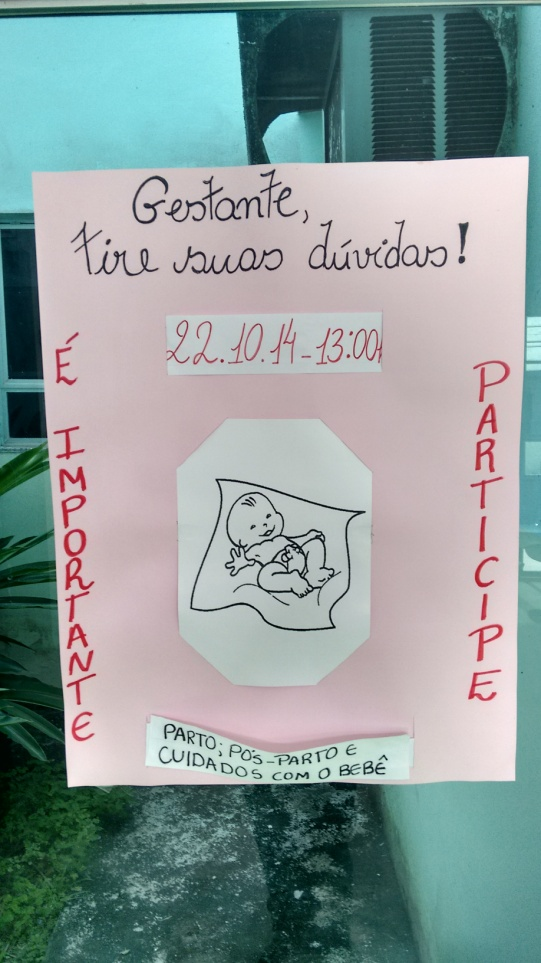 Gestante,
tire suas dúvidas!
22.10.14-13:00h
É IMPORTANTE
PARTICIPE
PARTO; PÓS-PARTO E
CUIDADOS COM O BEBÊ